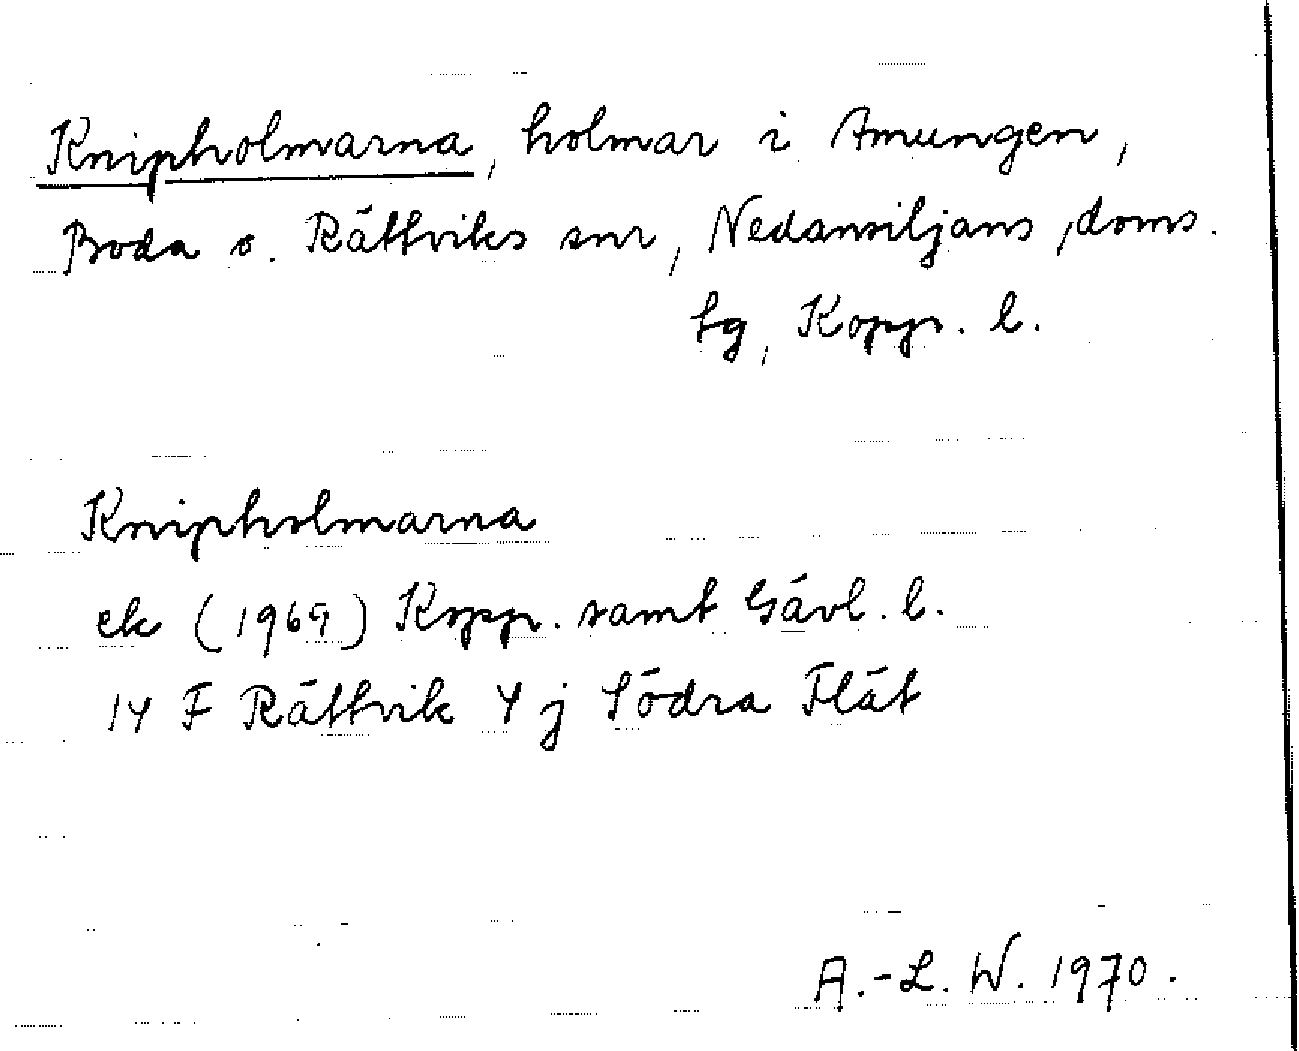 Knipholmarna, holmar i Amungen,
Boda o. Rättviks snr, Nedansiljans doms.
tg, Kopp. l.
Knipholmarna
ek (1969) Kopp. samt Gävl. l.
14 F Rättvik 4 j Södra Flät
A.-L. W. 1970.